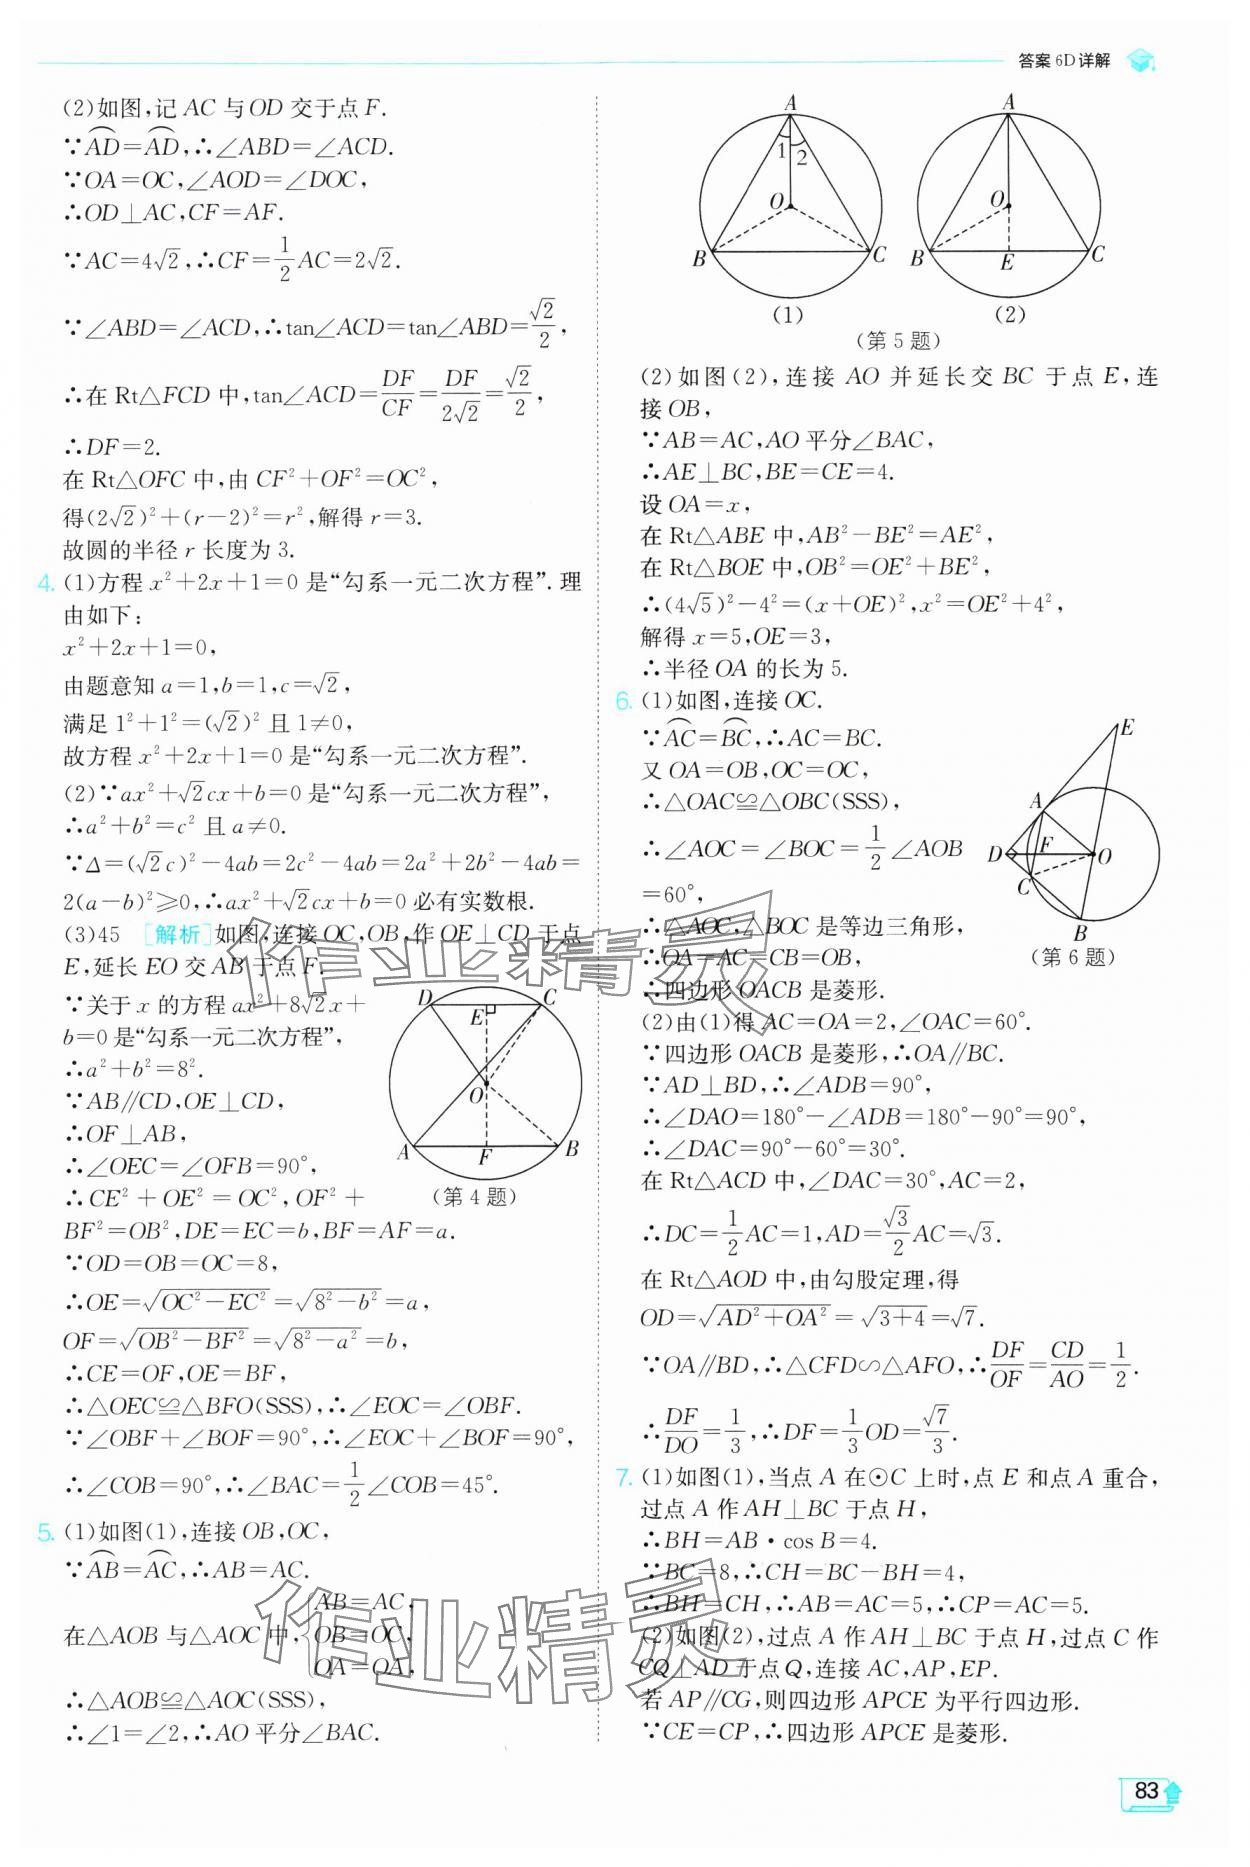 答案 6D详解
(2)如图,记 AC 与 OD 交于点 F.
∵⌒AD=⌒AD,∴∠ABD=∠ACD.
∵OA=OC,∠AOD=∠DOC,
∴OD⊥AC,CF=AF.
∵AC=4√2,∴CF=1/2AC=2√2.
∵∠ABD=∠ACD,∴tan∠ACD=tan∠ABD=√2/2,
∴在 Rt△FCD 中,tan∠ACD=DF/CF=DF/2√2=√2/2,
∴DF=2.
在 Rt△OFC 中,由 CF²+OF²=OC²,
得(2√2)²+(r-2)²=r²,解得 r=3.
故圆的半径 r 长度为 3.
4. (1)方程 x²+2x+1=0 是“勾系一元二次方程”. 理
由如下:
x²+2x+1=0,
由题意知 a=1,b=1,c=√2,
满足 1²+1²=(√2)² 且 1≠0,
故方程 x²+2x+1=0 是“勾系一元二次方程”.
(2)∵ax²+√2cx+b=0 是“勾系一元二次方程”,
∴a²+b²=c² 且 a≠0.
∵Δ=(√2c)²-4ab=2c²-4ab=2a²+2b²-4ab=
2(a-b)²≥0,∴ax²+√2cx+b=0 必有实数根.
(3)45 [解析]如图,连接 OC,OB,作 OE⊥CD 于点
E,延长 EO 交 AB 于点 F.
∵关于 x 的方程 ax²+8√2x+
b=0 是“勾系一元二次方程”,
∴a²+b²=8².
∵AB∥CD,OE⊥CD,
∴OF⊥AB,
∴∠OEC=∠OFB=90°,
∴CE²+OE²=OC²,OF²+
BF²=OB²,DE=EC=b,BF=AF=a.
∵OD=OB=OC=8,
∴OE=√(OC²-EC²)=√(8²-b²)=a,
OF=√(OB²-BF²)=√(8²-a²)=b,
∴CE=OF,OE=BF,
∴△OEC≌△BFO(SSS),∴∠EOC=∠OBF.
∵∠OBF+∠BOF=90°,∴∠EOC+∠BOF=90°,
∴∠COB=90°,∴∠BAC=1/2∠COB=45°.
D
E
C
O
A
F
B
(第 4 题)
5. (1)如图(1),连接 OB,OC,
∵⌒AB=⌒AC,∴AB=AC.
在△AOB 与△AOC 中,{AB=AC,
OB=OC,
OA=OA,
∴△AOB≌△AOC(SSS),
∴∠1=∠2,∴AO 平分∠BAC.
A
1
2
O
B
C
(1)
A
O
B
E
C
(2)
(第 5 题)
(2)如图(2),连接 AO 并延长交 BC 于点 E,连
接 OB,
∵AB=AC,AO 平分∠BAC,
∴AE⊥BC,BE=CE=4.
设 OA=x,
在 Rt△ABE 中,AB²-BE²=AE²,
在 Rt△BOE 中,OB²=OE²+BE²,
∴(4√5)²-4²=(x+OE)²,x²=OE²+4²,
解得 x=5,OE=3,
∴半径 OA 的长为 5.
6. (1)如图,连接 OC.
∵⌒AC=⌒BC,∴AC=BC.
又 OA=OB,OC=OC,
∴△OAC≌△OBC(SSS),
∴∠AOC=∠BOC=1/2∠AOB
=60°,
∴△AOC,△BOC 是等边三角形,
∴OA=AC=CB=OB,
∴四边形 OACB 是菱形.
E
A
D
F
O
C
B
(第 6 题)
(2)由(1)得 AC=OA=2,∠OAC=60°.
∵四边形 OACB 是菱形,∴OA∥BC.
∵AD⊥BD,∴∠ADB=90°,
∴∠DAO=180°-∠ADB=180°-90°=90°,
∴∠DAC=90°-60°=30°.
在 Rt△ACD 中,∠DAC=30°,AC=2,
∴DC=1/2AC=1,AD=√3/2AC=√3.
在 Rt△AOD 中,由勾股定理,得
OD=√(AD²+OA²)=√(3+4)=√7.
∵OA∥BD,∴△CFD∽△AFO,∴DF/OF=CD/AO=1/2.
∴DF/DO=1/3,∴DF=1/3OD=√7/3.
7. (1)如图(1),当点 A 在⊙C 上时,点 E 和点 A 重合,
过点 A 作 AH⊥BC 于点 H,
∴BH=AB·cos B=4.
∵BC=8,∴CH=BC-BH=4,
∴BH=CH,∴AB=AC=5,∴CP=AC=5.
(2)如图(2),过点 A 作 AH⊥BC 于点 H,过点 C 作
CQ⊥AD 于点 Q,连接 AC,AP,EP.
若 AP∥CG,则四边形 APCE 为平行四边形.
∵CE=CP,∴四边形 APCE 是菱形.
作业精灵
作业精灵
83